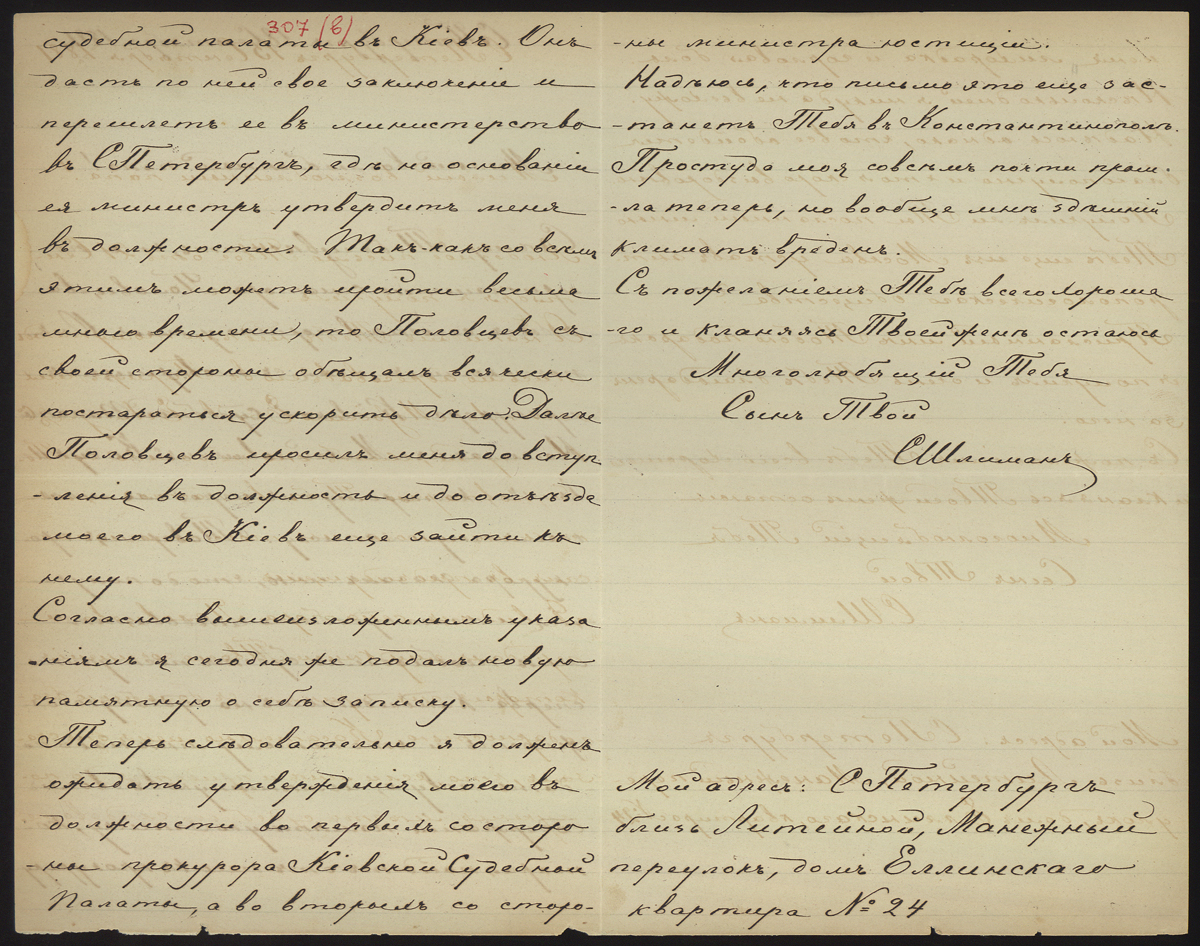 307 (б)
судебной палаты въ Кіевъ. Онъ
дастъ по ней свое заключеніе и
перешлетъ ее въ министерство
въ СПетербургъ, гдѣ на основаніи
ея министръ утвердитъ меня
въ должности. Такъ-какъ со всѣмъ
этимъ можетъ пройти весьма
много времени, то Половцевъ съ
своей стороны обѣщалъ всячески
постараться ускорить дѣло. Далѣе
Половцевъ просилъ меня до вступ
-ленія въ должность и до отъѣзда
моего въ Кіевъ еще зайти къ
нему.
Согласно вышеизложеннымъ указа
-ніямъ я сегодня же подалъ новую
памятную о себѣ записку.
Теперь слѣдовательно я долженъ
ожидать утвержденія моего въ
должности во первыхъ со сторо
-ны прокурора Кіевской Судебной
Палаты, а во вторыхъ со сторо-
-ны министра юстиціи.
Надѣюсь, что письмо это еще зас-
-танетъ Тебя въ Константинополѣ.
Простуда моя совсѣмъ почти прош-
-ла теперь, но вообще мнѣ здѣшній
климатъ вреденъ.
Съ пожеланіемъ Тебѣ всего хороша
-го и кланяясь Твоей женѣ остаюсь
Многолюбящій Тебя
Сынъ Твой
СШлиманъ
Мой адресъ: СПетербургъ
близь Литейной, Манежный
переулокъ, домъ Еллинскаго
квартира № 24